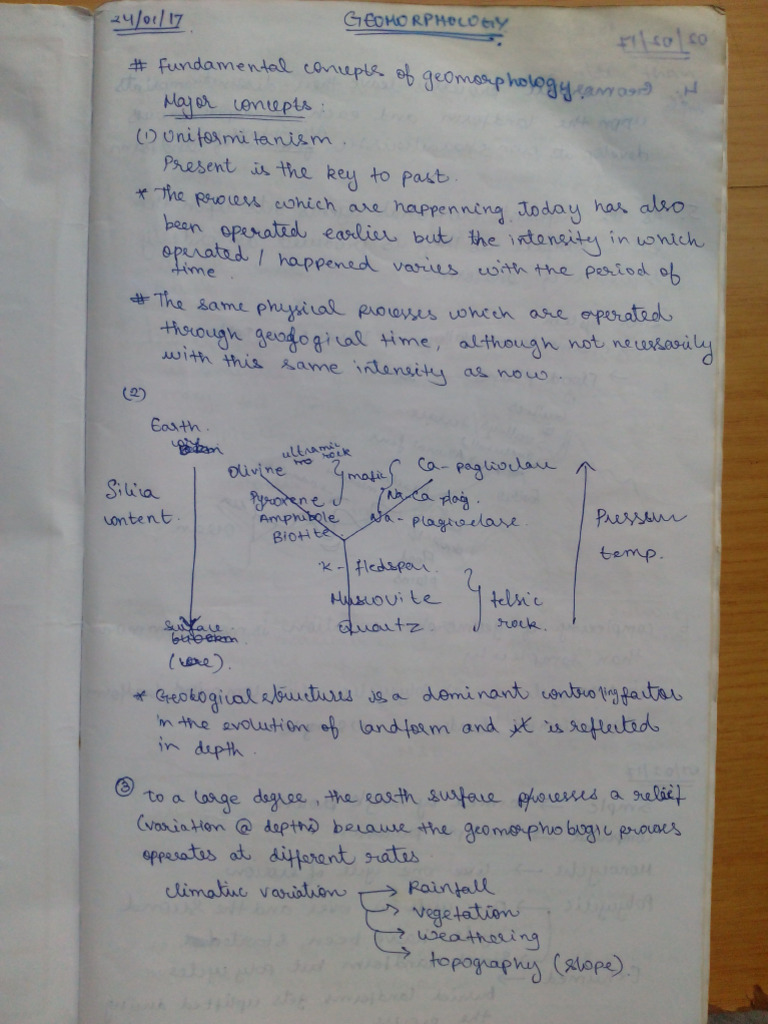 24/01/17
GEOMORPHOLOGY
# Fundamental concepts of geomorphology.
Major concepts:
(1) Uniformitanism.
Present is the key to past.
* The process which are happenning today has also
been operated earlier but the intensity in which
operated / happened varies with the period of
time.
# The same physical processes which are operated
through geological time, although not necessarily
with this same intensity as now.
(2)
Earth.
Silica
content.
surface
(core).
ultramic
rock
Olivine
Pyroxene
Amphibole
Biotite
mafic
Ca-pagлioclase
Na-Ca plag.
Na-plagioclase.
K-fledspar.
Muscovite
Quartz
felsic
rock.
Pressure
temp.
* Geological structures is a dominant controling factor
in the evolution of landform and it is reflected
in depth.
(3) To a large degree, the earth surface processes a relief
(variation @ depths) because the geomorphologic process
opperates at different rates.
climatic variation → Rainfall
→ vegetation
→ weathering
→ topography (slope).